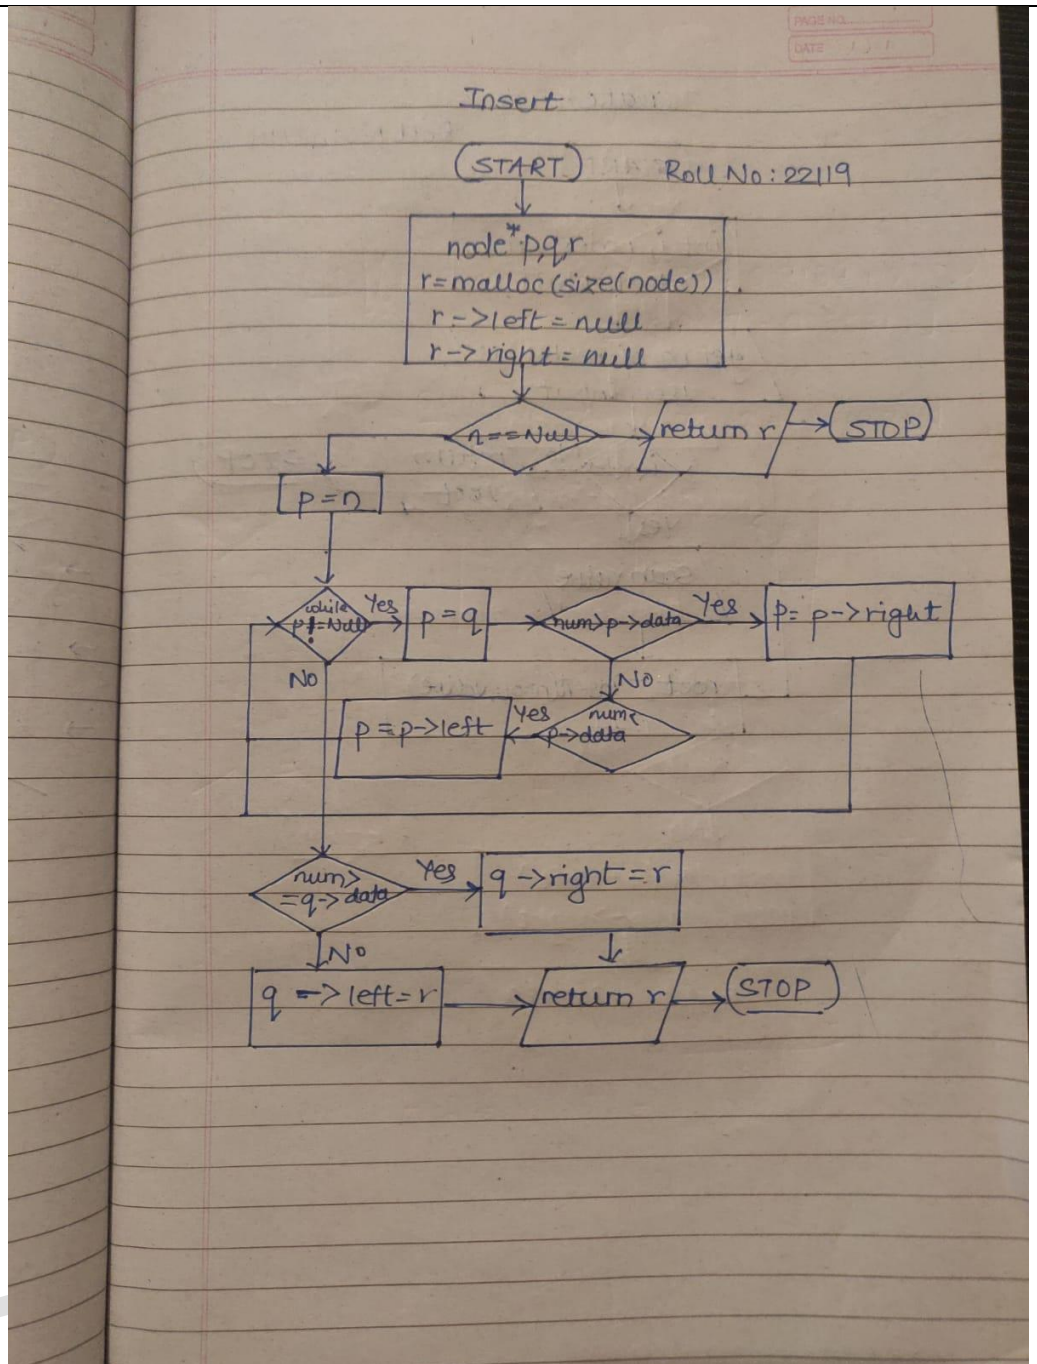 PAGE NO.
DATE / /
Insert
START
Roll No: 22119
node *p,q,r
r=malloc(size(node))
r->left=null
r->right=null
n==Null
return r
STOP
p=n
while
p!=Null
Yes
p=q
num>p->data
Yes
p= p->right
NO
NO
p=p->left
Yes
num<
p->data
num>
=q->data
Yes
q->right=r
NO
q->left=r
return r
STOP